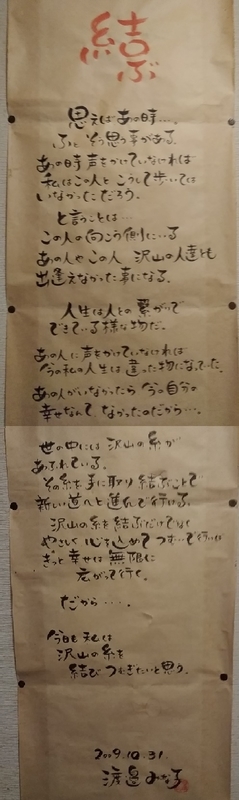 結ぶ
思えばあの時…。
ふと そう思う事がある。
あの時声をかけていなければ
私はこの人と こうして歩いては
いなかっただろう。
と言うことは…
この人の向こう側にいる
あの人やこの人 沢山の人達とも
出逢えなかった事になる。
人生は人との繋がりで
できている様な物だ。
あの人に声をかけていなければ
今の私の人生は 違った物になっていた。
あの人がいなかったら 今の自分の
幸せなんて なかったのだから…。
世の中には 沢山の糸が
あふれている。
その糸を手に取り 結ぶことで
新しい道へと進んで行ける。
沢山の糸を結ぶだけでなく
やさしく 心を込めて つむいで行けば
きっと 幸せは 無限に
広がって行く。
だから…。
今日も 私は
沢山の糸を
結び つむぎたいと思う。
2009.10.31.
渡邉みな子